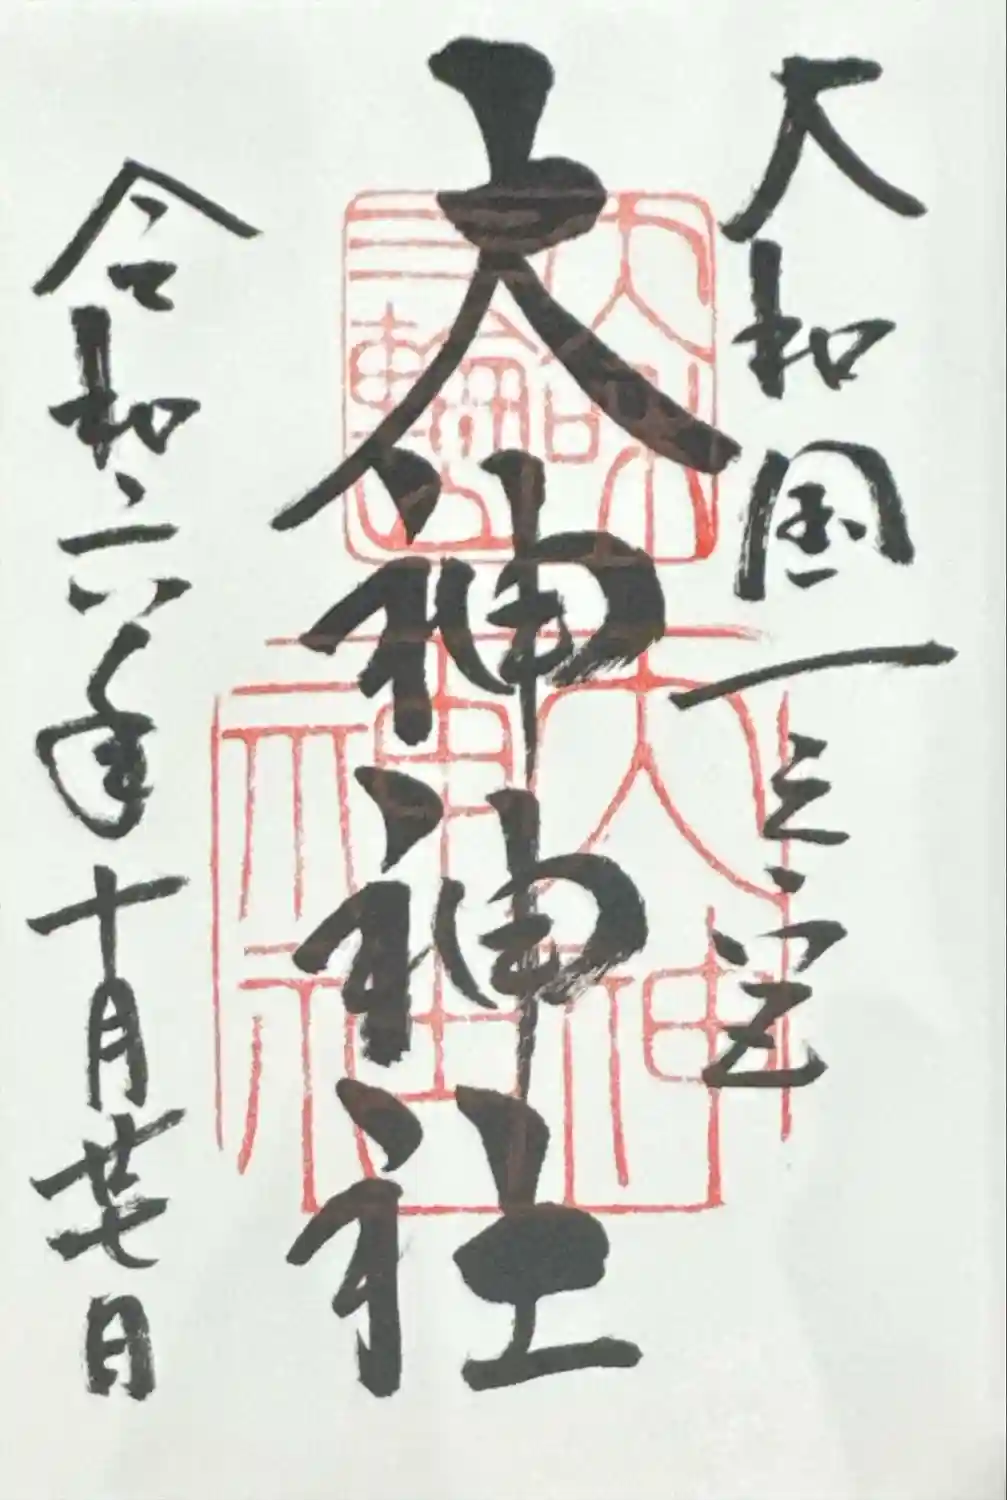 大和国一之宮
大神神社
令和六年十月廿七日
三輪
大神
神社